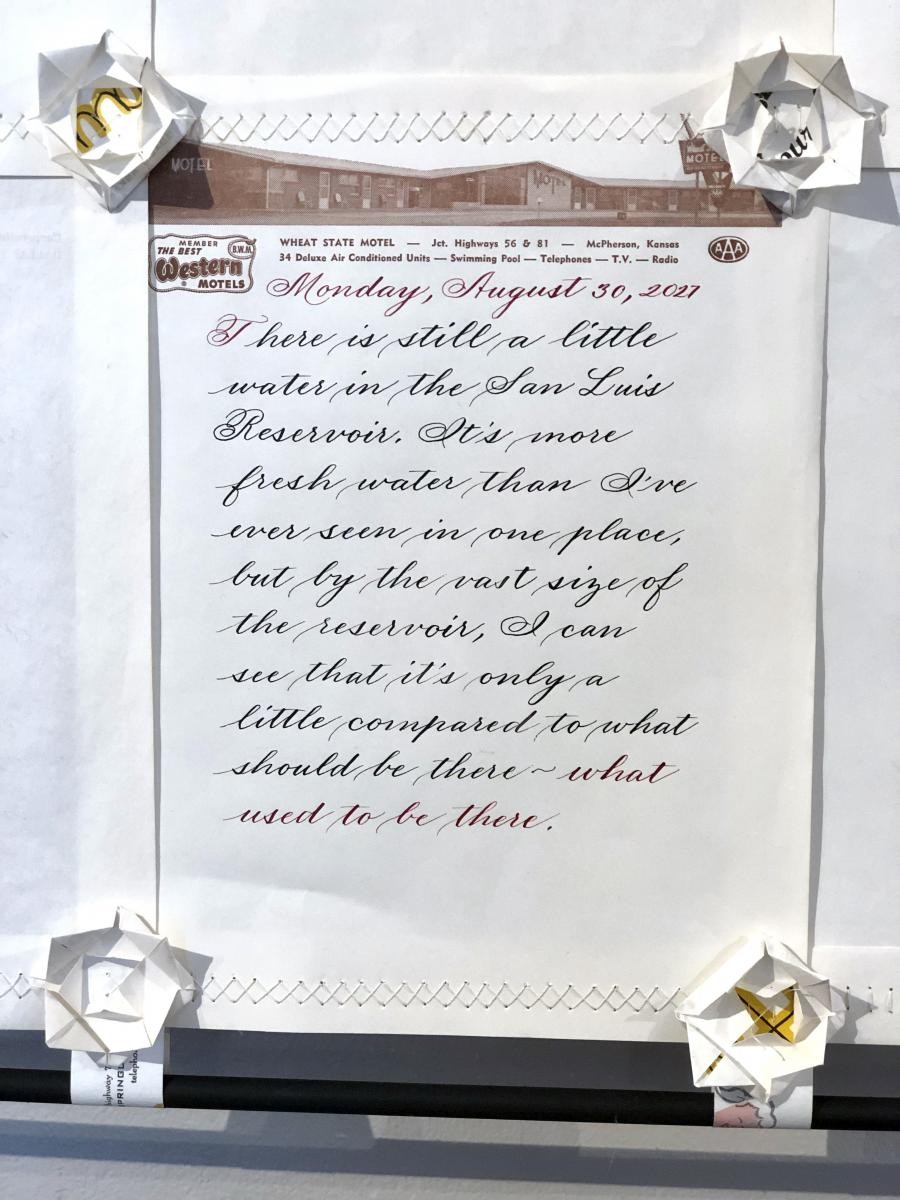 MOTEL
MOTEL
MOTEL
MEMBER
THE BEST
Western
MOTELS
B.W.M.
WHEAT STATE MOTEL — Jct. Highways 56 & 81 — McPherson, Kansas
34 Deluxe Air Conditioned Units — Swimming Pool — Telephones — T.V. — Radio
AAA
Monday, August 30, 2027
There is still a little
water in the San Luis
Reservoir. It's more
fresh water than I've
ever seen in one place,
but by the vast size of
the reservoir, I can
see that it's only a
little compared to what
should be there ~ what
used to be there.